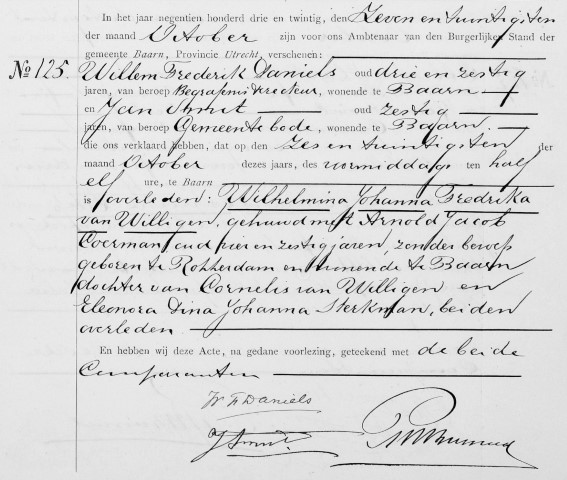 In het jaar negentien honderd drie en twintig, den Zeven en twintigsten
der maand October zijn voor ons Ambtenaar van den Burgerlijken Stand der
gemeente Baarn, Provincie Utrecht, verschenen:
No 125. Willem Frederik Daniels oud drie en zestig
jaren, van beroep Begrafenisdirecteur, wonende te Baarn
en Jan Smit oud zestig
jaren, van beroep Gemeentebode, wonende te Baarn
die ons verklaard hebben, dat op den Zes en twintigsten der
maand October dezes jaars, des voormiddags ten half
elf ure, te Baarn
is overleden: Wilhelmina Johanna Fredrika
van Willigen, gehuwd met Arnold Jacob
Coerman, oud vier en zestig jaren, zonder beroep
geboren te Rotterdam en wonende te Baarn
dochter van Cornelis van Willigen en
Eleonora Dina Johanna Sterkman, beiden
overleden
En hebben wij deze Acte, na gedane voorlezing, geteekend met de beide
Comparanten
W F Daniels
J Smit